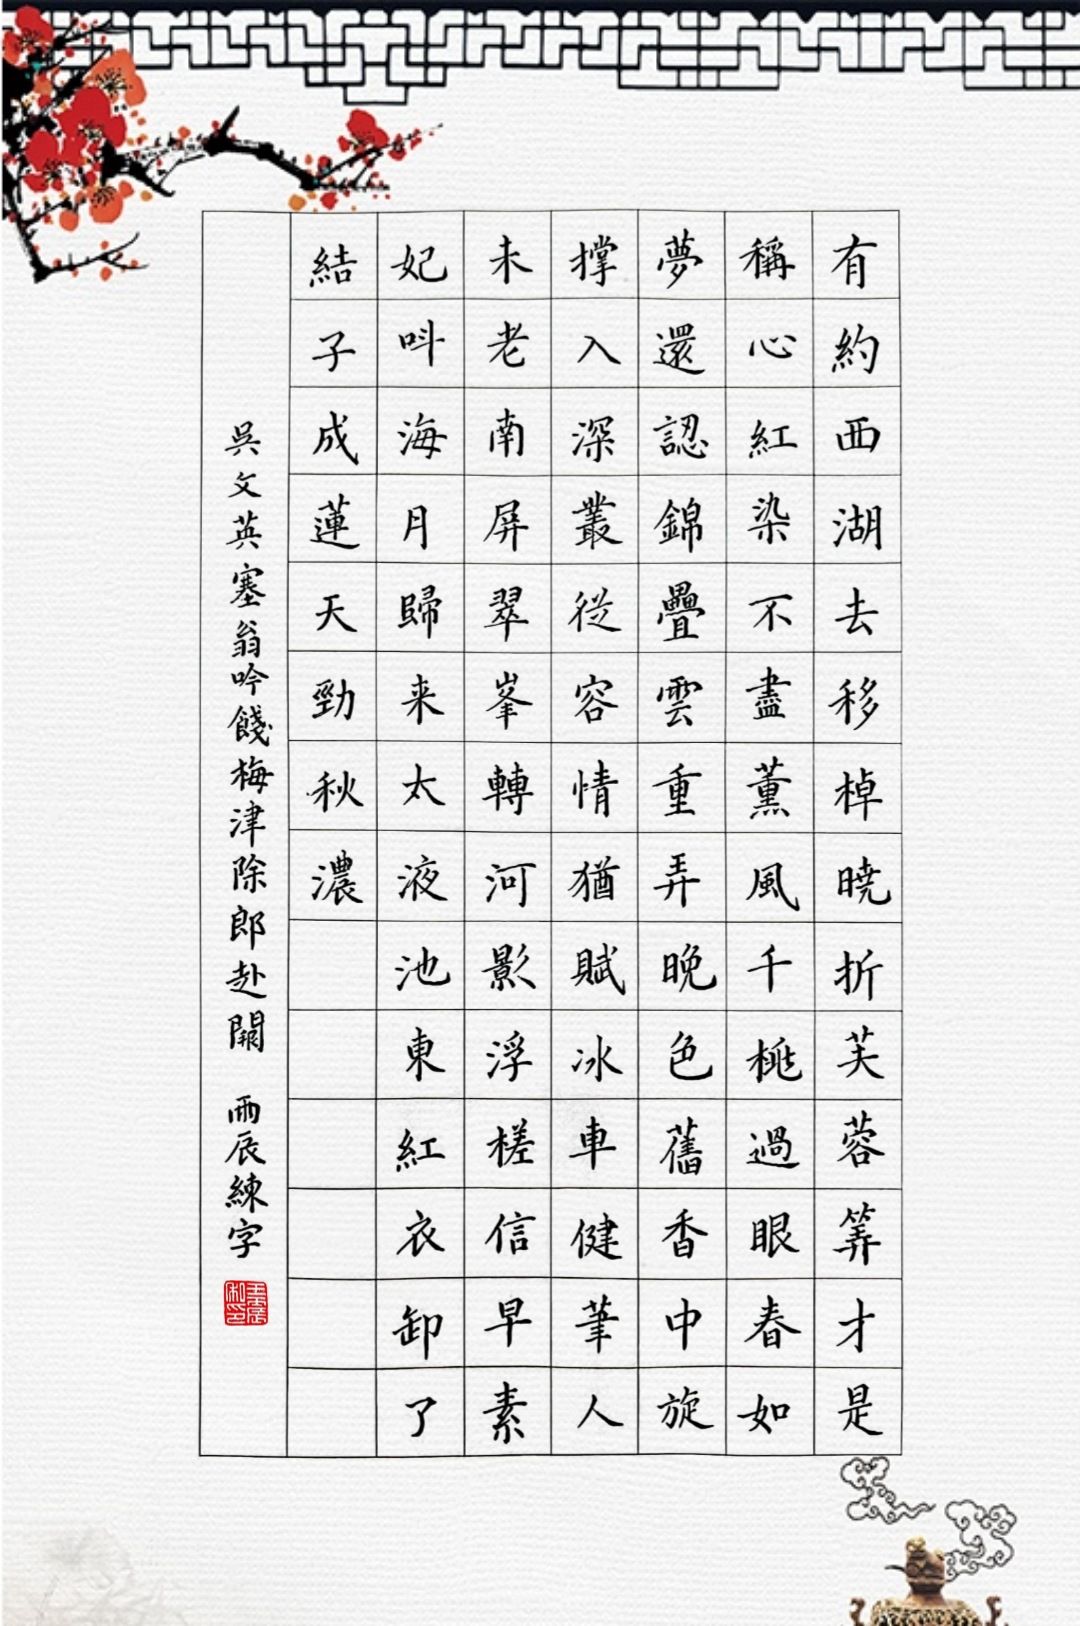 有約西湖去移棹曉折芙蓉筭才是
稱心紅染不盡薰風千桃過眼春如
夢還認錦疊雲重弄晚色舊香中旋
撑入深叢從容情猶賦冰車健筆人
未老南屏翠峯轉河影浮槎信早素
妃叫海月歸来太液池東紅衣卸了
結子成蓮天勁秋濃
吳文英塞翁吟餞梅津除郎赴闕 丙辰練字